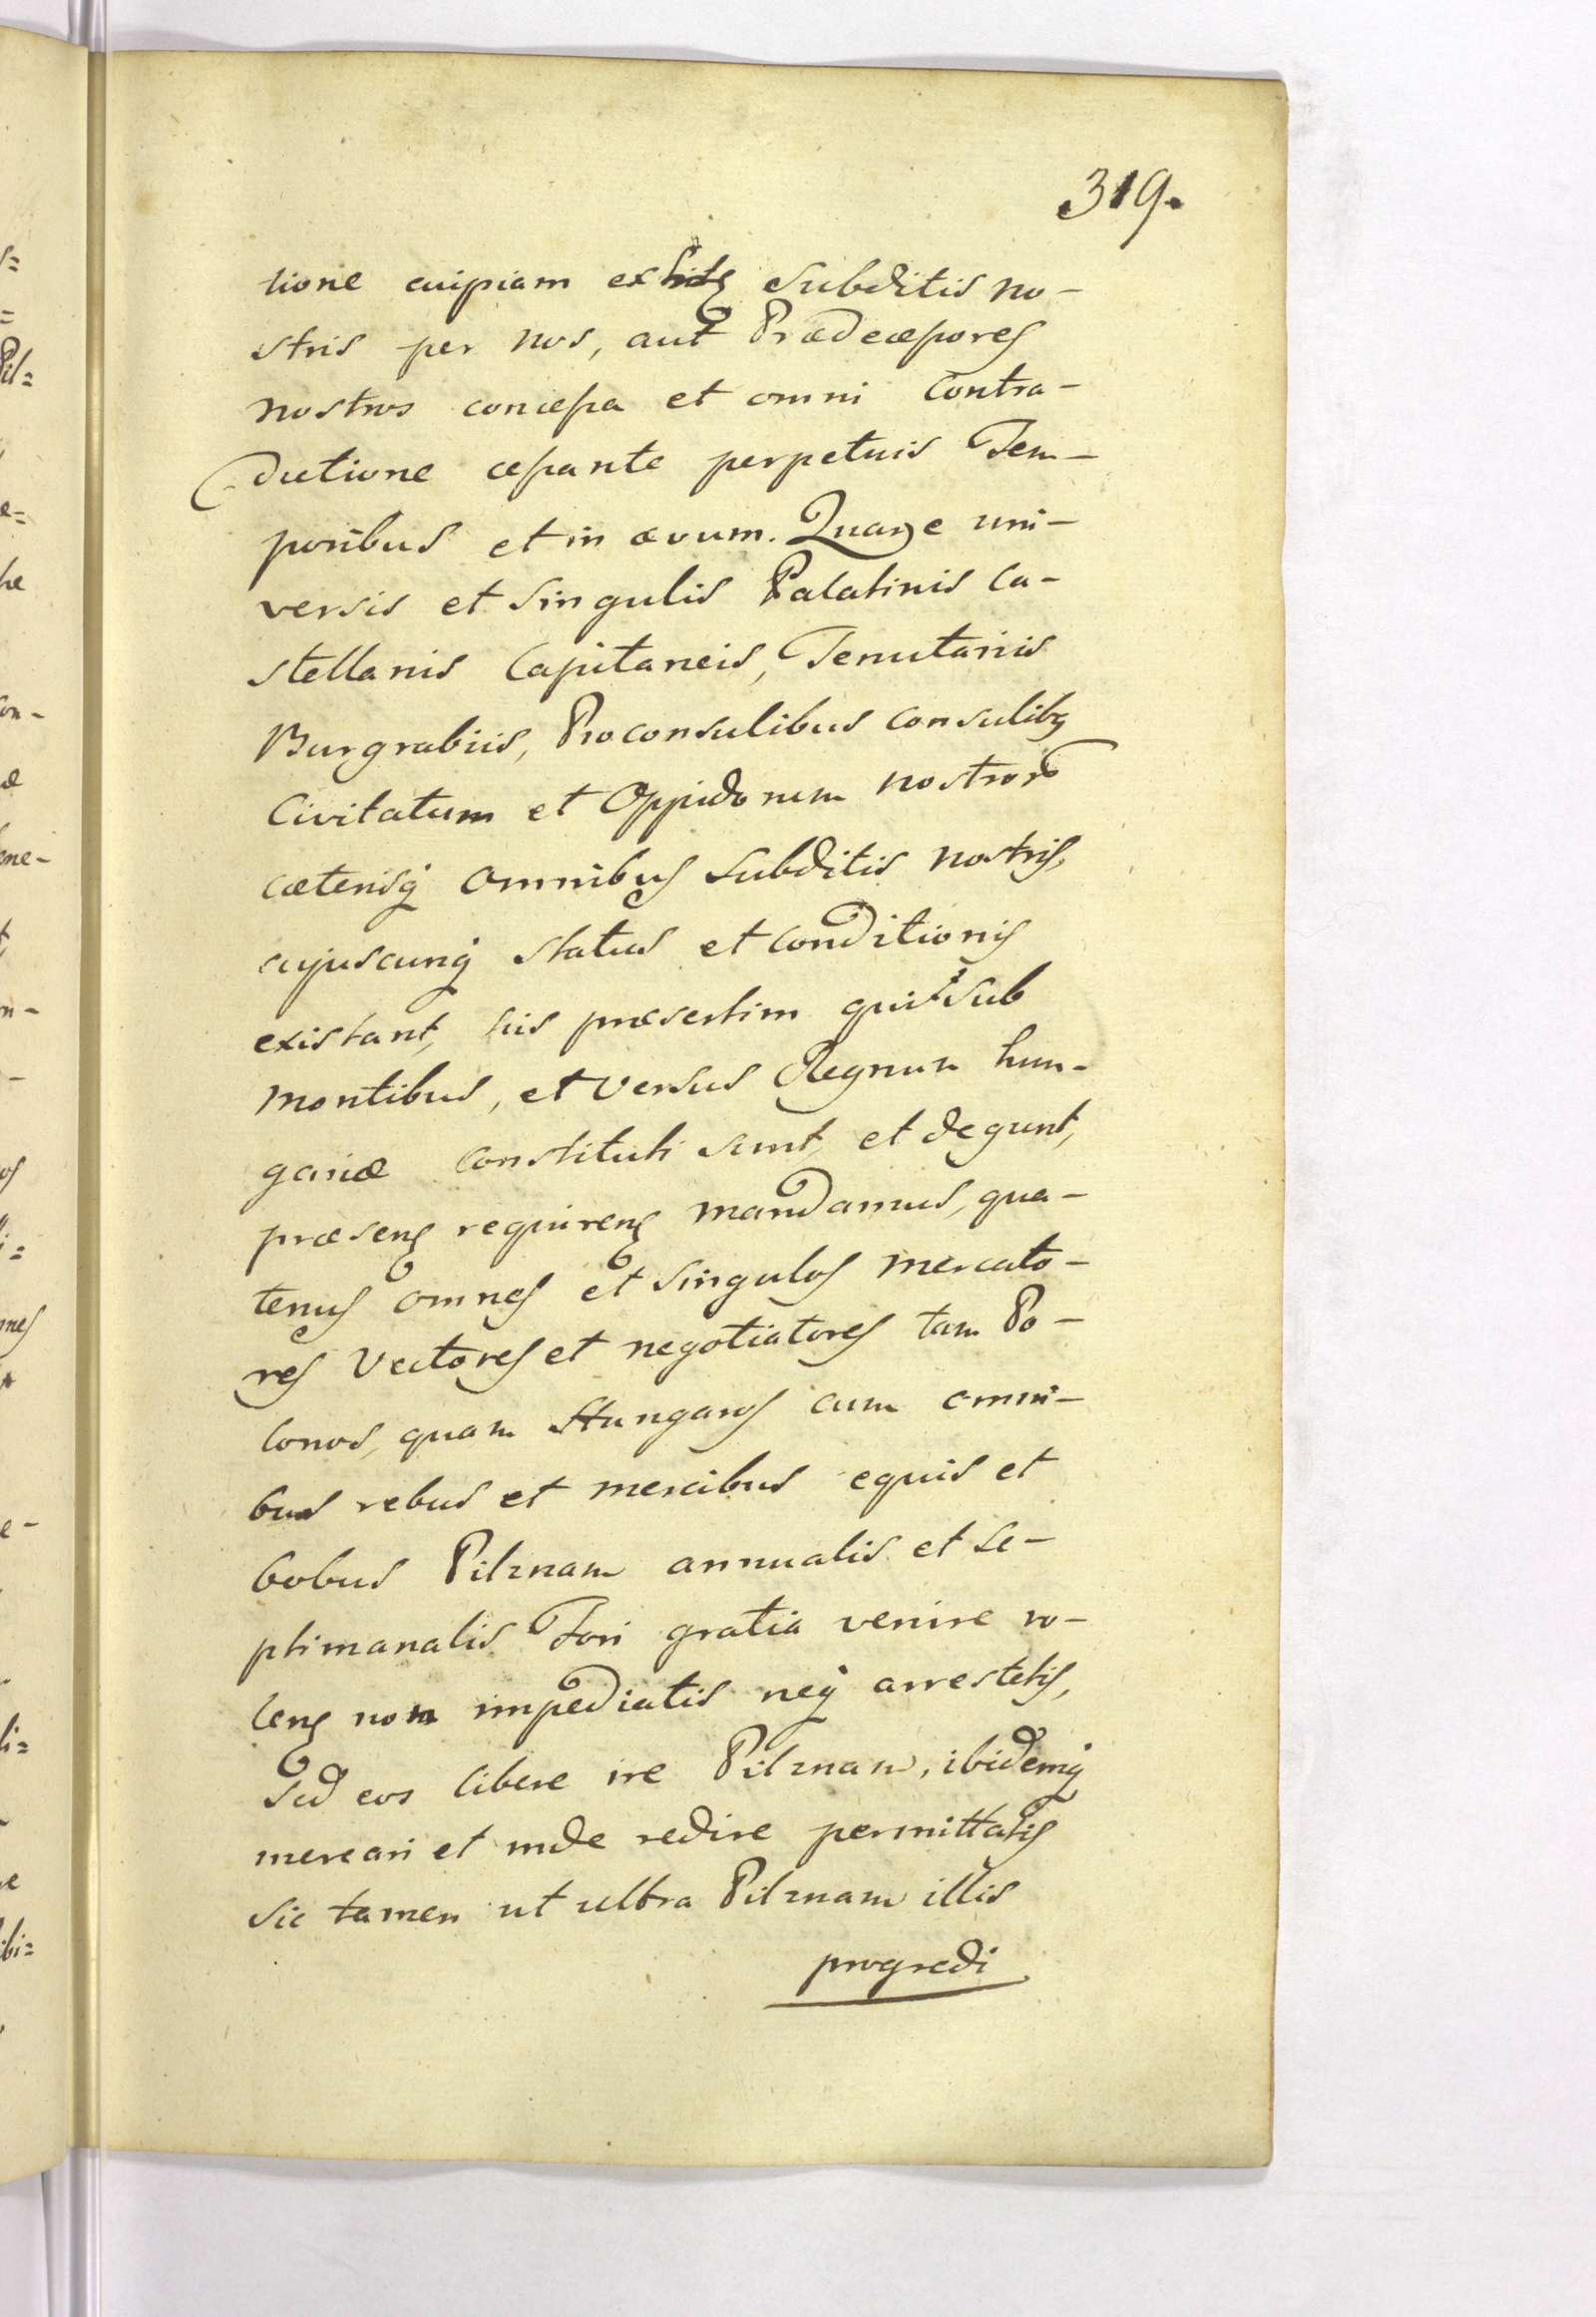 319.
tione cuipiam ex Subditis no-
stris per nos, aut Prædecessores
nostros concessa et omni Contra-
dictione cessante perpetuis Tem-
poribus et in ævum. Quare uni-
versis et singulis Palatinis Ca-
stellanis Capitaneis, Tenutariis
Burgrabiis, Proconsulibus Consulibq
Civitatum et Oppidorum nostrorũ
cæterisq omnibus subditis nostris,
cujuscunq status et conditionis
existant, his præsertim qui sub
montibus, et versus Regnum hun-
gariæ constituti sunt, et degunt,
præsens requirens mandamus, qua-
tenus omnes et singulos mercato-
res Vectores et negotiatores tam Po-
lonos, quam Hungaros cum omni-
bus rebus et mercibus equis et
bobus Pilznam annualis et se-
ptimanalis Fori gratia venire vo-
lens non impediatis neq arrestetis,
Sed eos libere ire Pilznam, ibidemq
mercari et inde redire permittatis
sic tamen ut ultra Pilznam illis
progredi